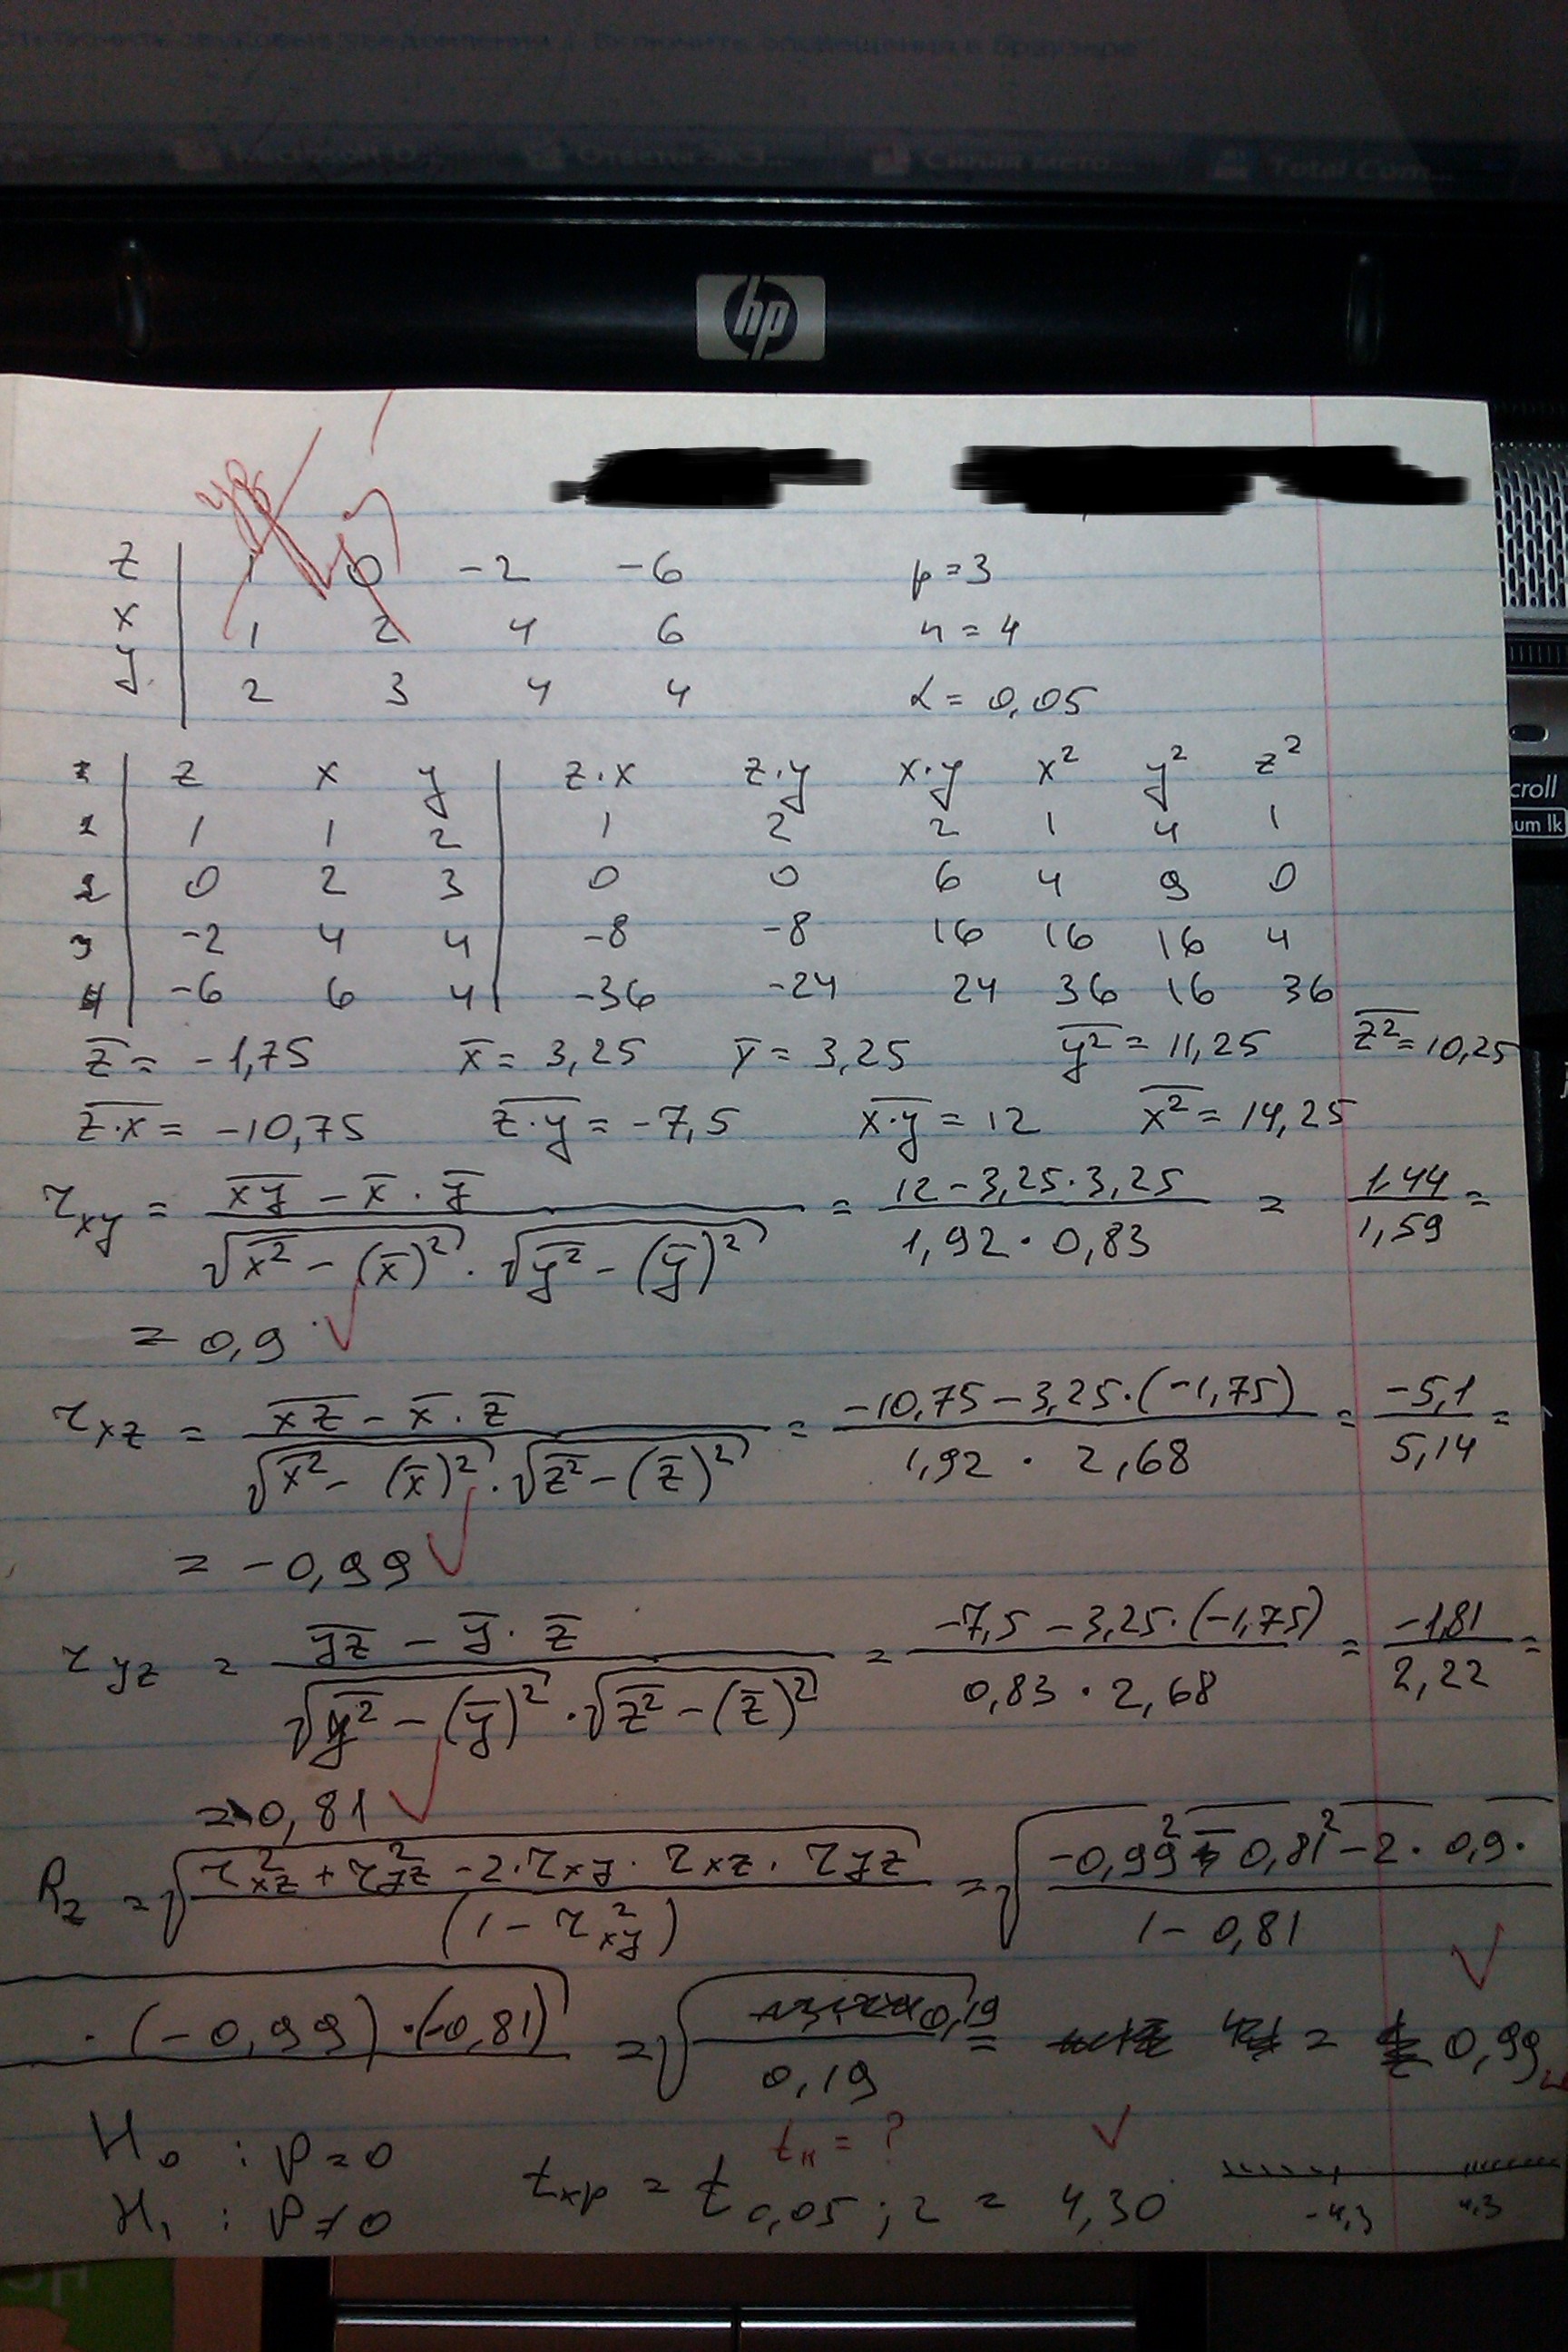 Total Com...
hp
croll
um lk
z | 1 0 -2 -6 p=3
x | 1 2 4 6 n=4
y | 2 3 4 4 α=0,05
z x y | z·x z·y x·y x² y² z²
1 | 1 1 2 | 1 2 2 1 4 1
2 | 0 2 3 | 0 0 6 4 9 0
3 | -2 4 4 | -8 -8 16 16 16 4
4 | -6 6 4 | -36 -24 24 36 16 36
z̅ = -1,75 x̅ = 3,25 y̅ = 3,25 y²̅ = 11,25 z²̅ = 10,25
z·x̅ = -10,75 z·y̅ = -7,5 x·y̅ = 12 x²̅ = 14,25
r_xy = (xy̅ - x̅·y̅) / (√(x²̅ - (x̅)²) · √(y²̅ - (y̅)²)) = (12 - 3,25·3,25) / (1,92·0,83) = 1,44 / 1,59 =
= 0,9
r_xz = (xz̅ - x̅·z̅) / (√(x²̅ - (x̅)²) · √(z²̅ - (z̅)²)) = (-10,75 - 3,25·(-1,75)) / (1,92·2,68) = -5,1 / 5,14 =
= -0,99
r_yz = (yz̅ - y̅·z̅) / (√(y²̅ - (y̅)²) · √(z²̅ - (z̅)²)) = (-7,5 - 3,25·(-1,75)) / (0,83·2,68) = -1,81 / 2,22 =
= -0,81
R_z = √((r²_xz + r²_yz - 2·r_xy·r_xz·r_yz) / (1 - r²_xy)) = √((-0,99² + 0,81² - 2·0,9·
1 - 0,81
·(-0,99)·(-0,81) = √(0,19 / 0,19) = 0,99
tн = ?
H₀ : ρ=0
H₁ : ρ≠0 tкр = t 0,05;2 = 4,30 -4,3 4,3